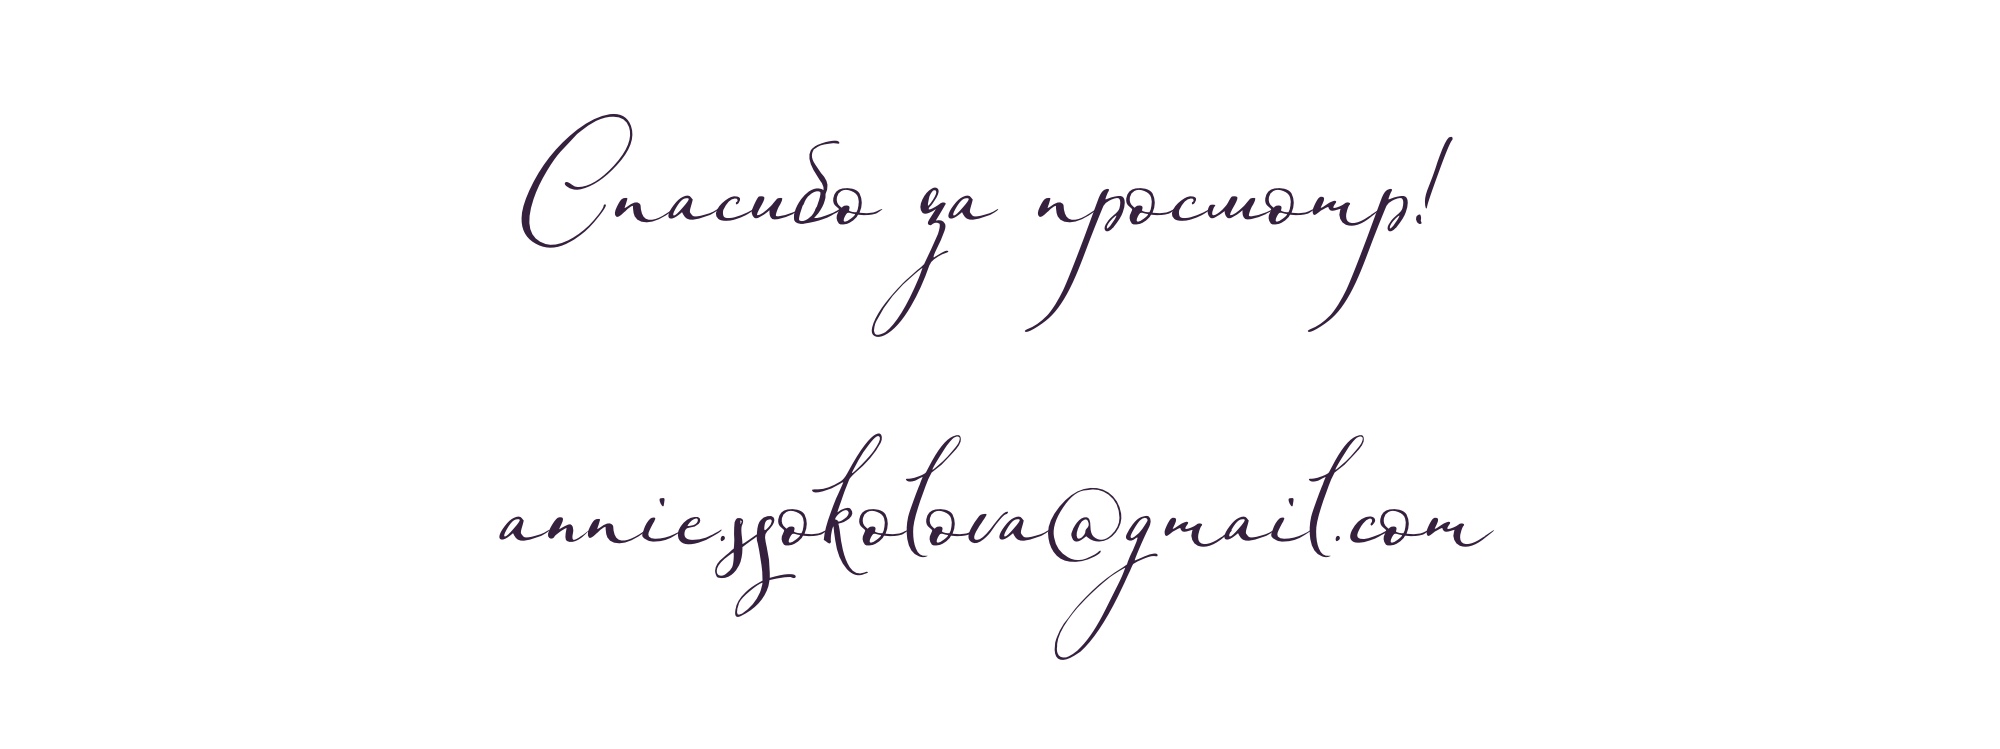 Спасибо за просмотр!
annie.ssokolova@gmail.com